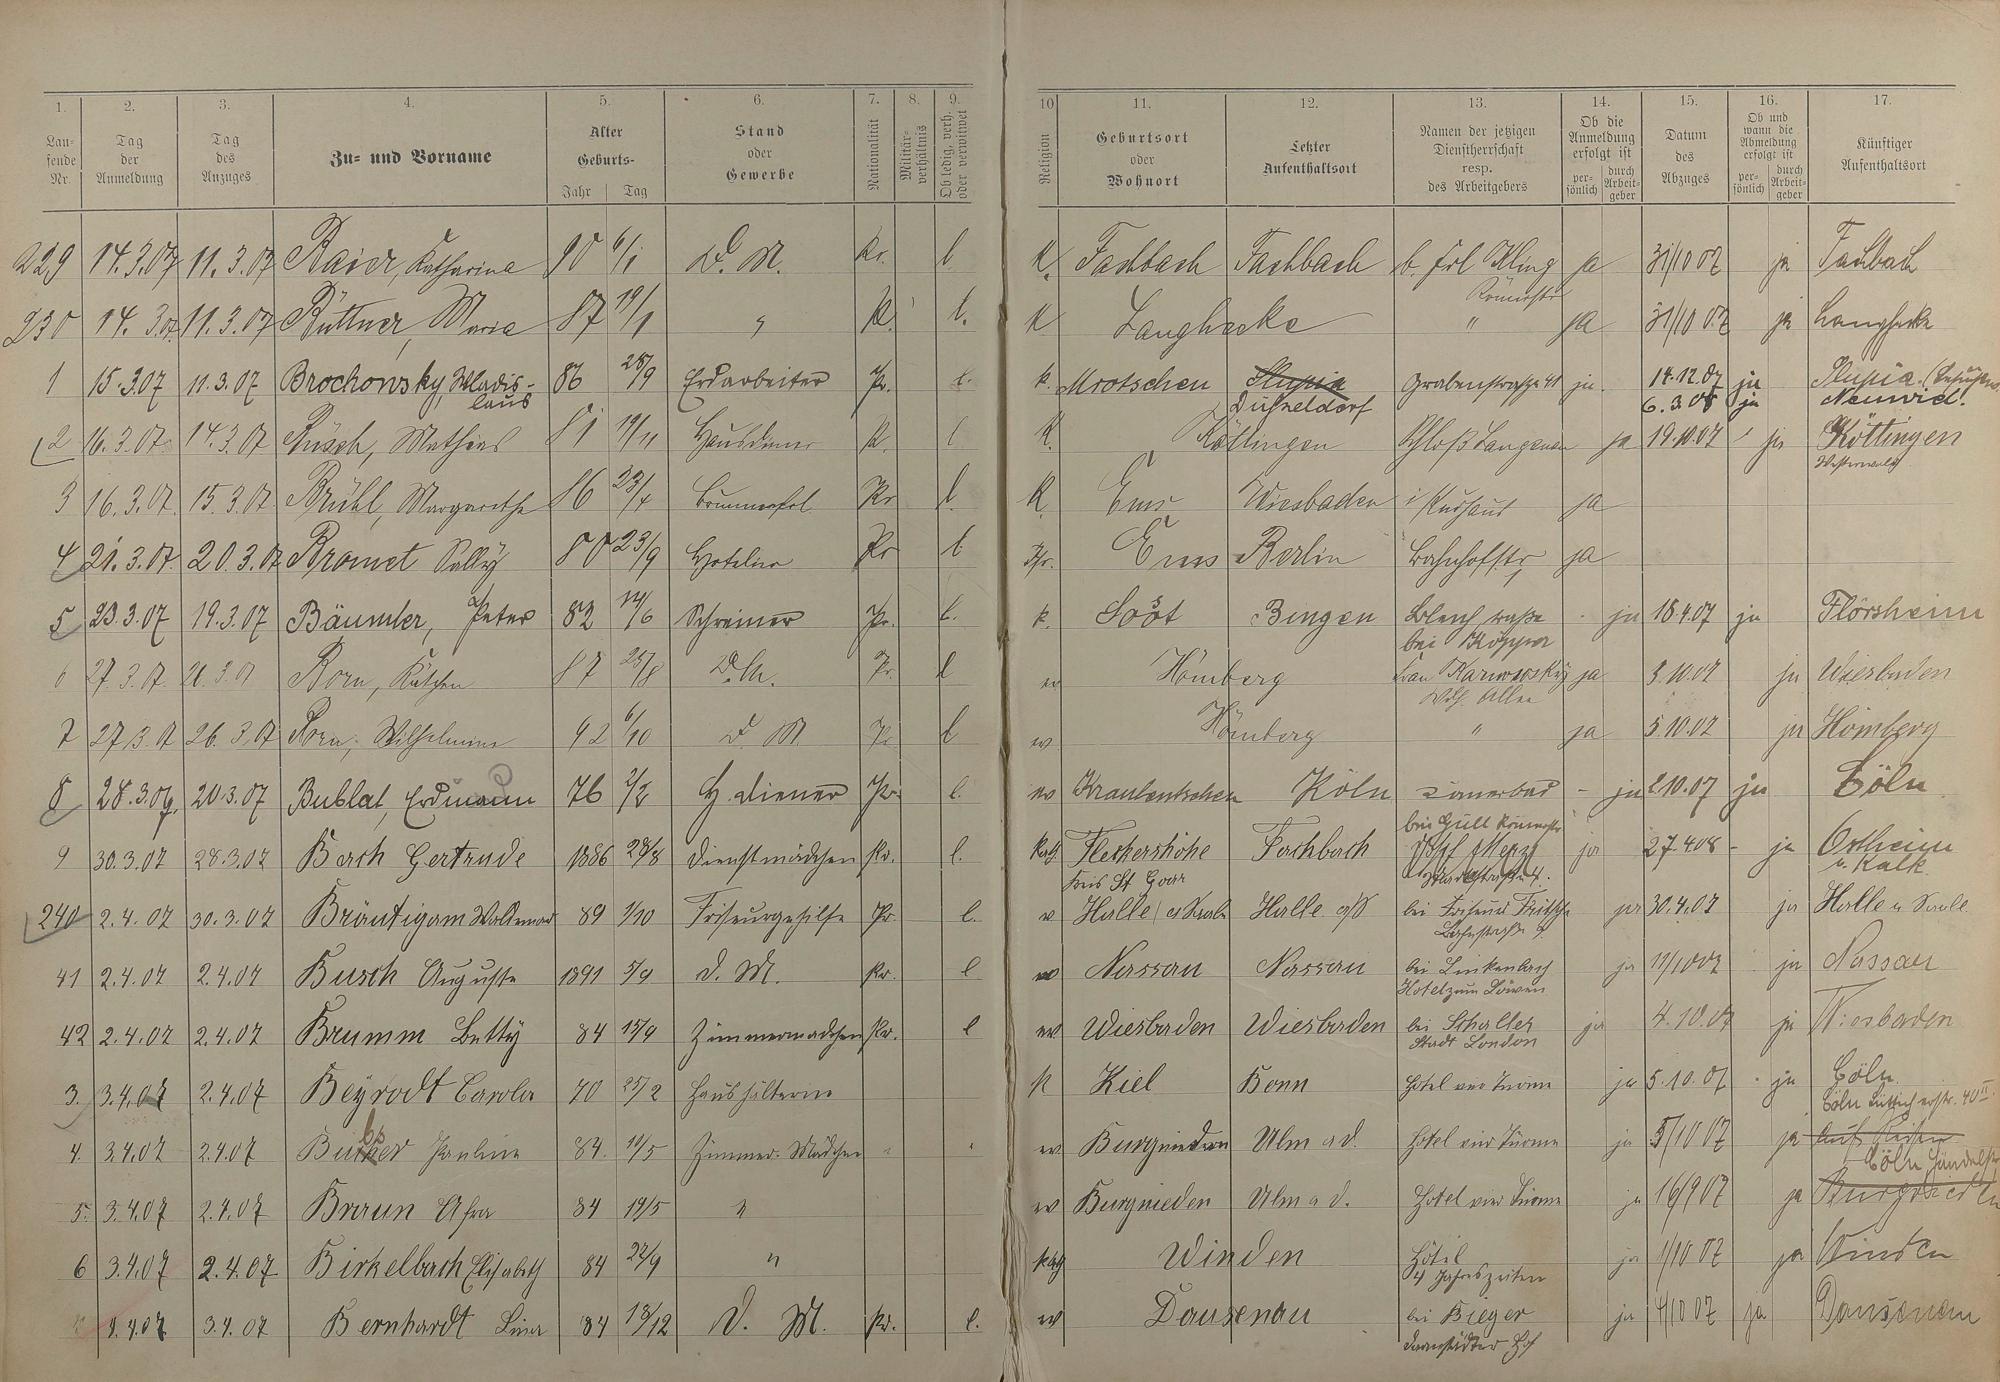 1. 2. 3. 4. 5. 6. 7. 8. 9. 10 11. 12. 13. 14. 15. 16. 17.
Lau-
fende
Nr.
Tag
der
Anmeldung
Tag
des
Anzuges
Zu- und Vorname
Alter
Geburts-
Jahr Tag
Stand
oder
Gewerbe
Nationalität
Militär-
verhältnis
Ob ledig, verh.
oder verwitwet
Religion
Geburtsort
oder
Wohnort
Letzter
Aufenthaltsort
Namen der jetzigen
Dienstherrschaft
resp.
des Arbeitgebers
Ob die
Anmeldung
erfolgt ist
per-
sönlich
durch
Arbeit-
geber
Datum
des
Abzuges
Ob und
wann die
Abmeldung
erfolgt ist
per-
sönlich
durch
Arbeit-
geber
Künftiger
Aufenthaltsort
229 14.3.07 11.3.07 Katharina 90 6/1 D. M. Pr. l K. Fachbach Fachbach b. Frl Kling ja 31/10 07 ja Fachbach
Römerstr
230 14.3.07 11.3.07 Büttner, Maria 87 19/1 " l. K Langhecke " ja 31/10 07 ja Langhecke
1 15.3.07 11.3.07 Brochowsky, Wladis- 86 28/9 Erdarbeiter Pr. l. k. Mrotschen Slupia Grabenstraße 41 ja. 14.12.07 ja Slupia.
laus Düsseldorf 6.3.08 ja Neuwied.
2 16.3.07 14.3.07 Büsch, Mathias 81 19/11 Hausdiener l K. Köttingen Schloß Langenau ja 19.10.07 ja Köttingen
Westerwald
3 16.3.07. 15.3.07 Brühl, Margarethe 86 23/4 Brunnenfrl. Pr l. K. Ems Wiesbaden i Kurhaus ja
4 21.3.07. 20.3.07 Bromet Sally 80 23/9 Hotelier Pr l Isr. Ems Berlin Bahnhofstr ja
5 23.3.07 19.3.07 Bäumler, Peter 82 14/6 Schreiner Pr. l. k. Soöt Bingen Bleichstraße ja 18.4.07 ja Flörsheim
bei Köpper
6 27.3.07. 21.3.07 Born, Kätchen 87 D. M. Pr. l ev Hömberg Frau ja 3.10.07 ja Wiesbaden
Wilh. Allee
7 27.3.07 26.3.07 Born, Wilhelmine 92 6/10 D. M Pr l ev Hömberg " ja 5.10.07 ja Hömberg
8 28.3.07. 20.3.07 Bublat, Erdmann 76 2/2 H. diener Pr. l. ev Kraulentschen Köln Römerbad - ja 2.10.07 ja Cöln
bei Güll Römerstr
9 30.3.07 28.3.07 Bach Gertrude 1886 28/8 Dienstmädchen Pr. l. Kath Fleckershöhe Fachbach ja 27.4.08 - ja Ostheim
Kreis St Goar b. Kalk
240 2.4.07 30.3.07 Bräutigam Waldemar 89 1/10 Friseurgehilfe Pr l. ev Halle a/Saale Halle a/S bei Friseur Fritsche ja 30.4.07 ja Halle a Saale
41 2.4.07 2.4.07 Busch Auguste 1891 5/9 D. M. Pr. l ev Nassau Nassau bei Linkenbach ja 11/10 07 ja Nassau
Hotel zum Löwen
42 2.4.07 2.4.07 Brumm Betty 84 15/9 Zimmermädchen Pr. l ev Wiesbaden Wiesbaden bei Schaller ja 4.10.07 ja Wiesbaden
Stadt London
3. 3.4.07 2.4.07 Beyrodt Carola 70 25/2 Haushälterin K Kiel Bonn Hotel vier Türme ja 5.10.07 ja Cöln
Cöln Lütticherstr. 40 II
4. 3.4.07 2.4.07 Pauline 84. 10/5 Zimmer-Mädchen " " ev Burgrieden Ulm a d. Hotel vier Türme ja 5/10 07 ja Auf Reisen
Cöln Händelstr
5. 3.4.07 2.4.07 Braun Afra 84 19/5 " ev Burgrieden Ulm a d. Hotel vier Türme ja 16/9 07 ja Burgrieden
6 3.4.07 2.4.07 Birkelbach Elisabeth 84 22/9 " Kath Winden Hôtel ja 1/10 07 ja Winden
4 Jahreszeiten
4.4.07 3.4.07 Bernhardt Lina 84 13/12 D. M. Pr. l. ev Dausenau bei Bieger ja 4/10 07 ja Dausenau
Darmstädter Hof